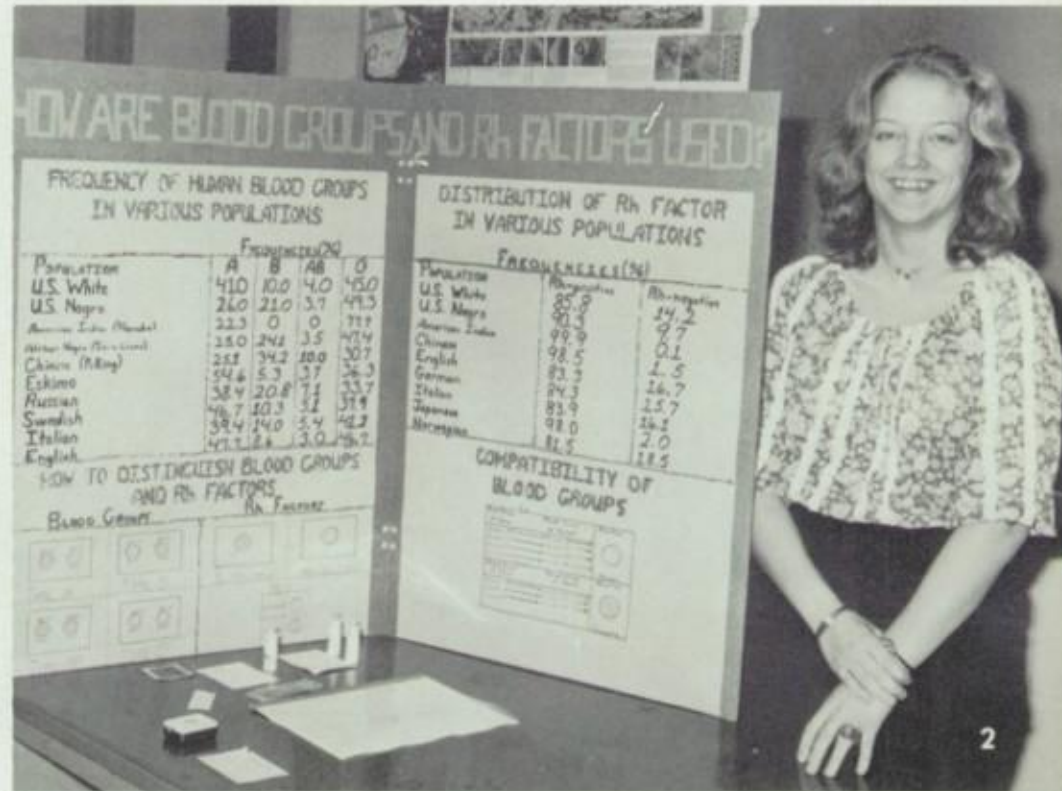 HOW ARE BLOOD GROUPS AND Rh FACTORS USED?
FREQUENCY OF HUMAN BLOOD GROUPS
IN VARIOUS POPULATIONS
FREQUENCIES(%)
POPULATION A B AB O
U.S. White 41.0 10.0 4.0 45.0
U.S. Negro 26.0 21.0 3.7 49.3
American Indian 22.3 0 0 77.7
African Negro 25.0 24.1 3.5 47.4
Chinese (Peking) 25.1 34.2 10.0 30.7
Eskimo 54.6 5.3 3.7 36.3
Russian 38.4 20.8 7.1 33.7
Swedish 46.7 10.3 5.1 37.9
Italian 39.4 14.0 5.4 41.2
English 47.7 3.0
HOW TO DISTINGUISH BLOOD GROUPS
AND Rh FACTORS
BLOOD GROUPS Rh FACTORS
DISTRIBUTION OF Rh FACTOR
IN VARIOUS POPULATIONS
FREQUENCIES(%)
POPULATION Rh-positive Rh-negative
U.S. White 85.8 14.2
U.S. Negro 9.7
American Indian 99.9 0.1
Chinese 98.5 1.5
English 83.3 16.7
German 84.3 15.7
Italian 83.9 16.1
Japanese 98.0 2.0
Norwegian 81.5 18.5
COMPATIBILITY OF
BLOOD GROUPS
2